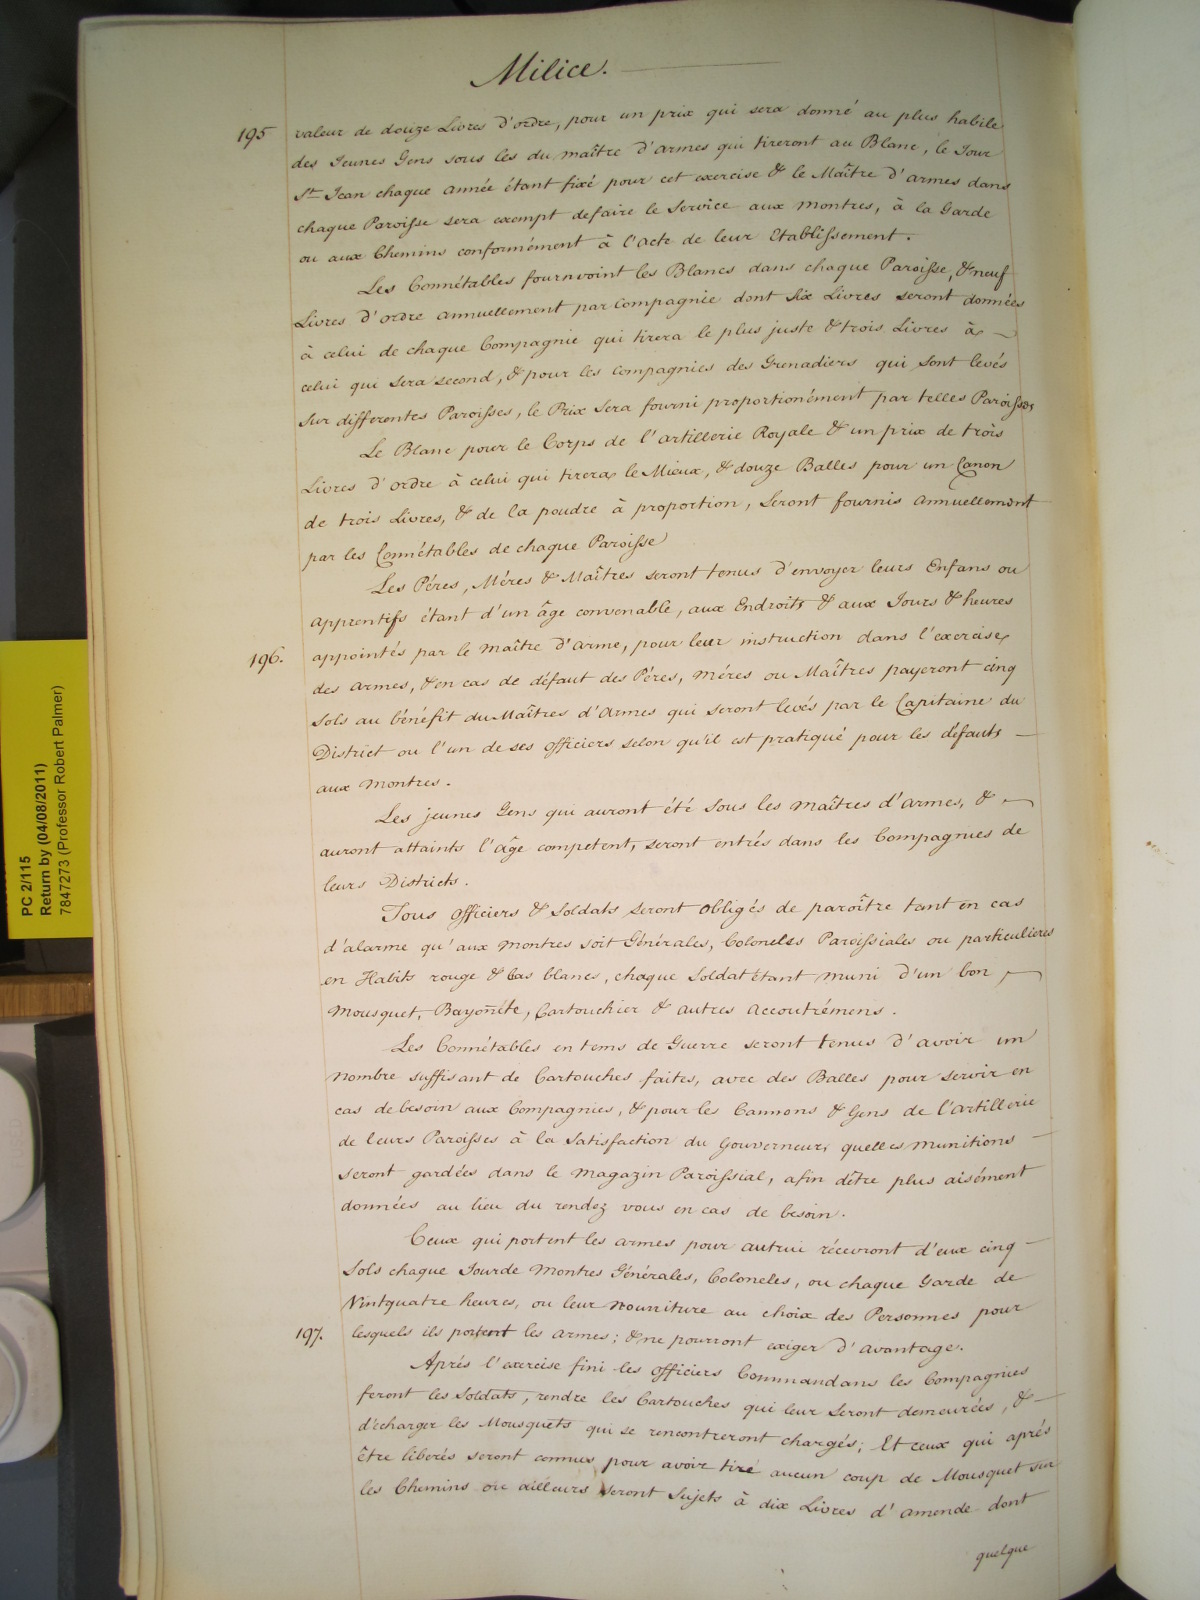 Milice.
195 valeur de douze Livres d'ordre, pour un prix qui sera donné au plus habile
des Jeunes Gens sous les du maître d'armes qui tireront au Blanc, le Jour
St Jean chaque année étant fixé pour cet exercise & le Maître d'armes dans
chaque Paroisse sera exempt defaire le Service aux montres, à la Garde
ou aux Chemins conformément à l'acte de leur Etablissement.
Les Connétables fournroint les Blancs dans chaque Paroisse, & neuf
Livres d'ordre annuellement par Compagnie dont Six Livres seront données
à celui de chaque Compagnie qui tirera le plus juste & trois Livres à
celui qui sera second, & pour les Compagnies des Grenadiers qui sont levés
sur differentes Paroisses, le Prix sera fourni proportionément par telles Paroisses
Le Blanc pour le Corps de l'artillerie Royale & un prix de trois
Livres d'ordre à celui qui tirera le Mieux, & douze Balles pour un Canon
de trois Livres, & de la poudre à proportion, Seront fournis annuellement
par les Connétables de chaque Paroisse
Les Péres, Méres & Maîtres seront tenus d'envoyer leurs Enfans ou
apprentifs étant d'un âge convenable, aux Endroits & aux Jours & heures
196. appointés par le maître d'arme, pour leur instruction dans l'exercise
des armes, & en cas de défaut des Péres, méres ou Maîtres payeront cinq
Sols au bénéfit du Maîtres d'Armes qui seront levés par le Capitaine du
District ou l'un de ses officiers selon qu'il est pratiqué pour les défauts
aux montres.
Les jeunes Gens qui auront été sous les maîtres d'armes, &
auront attaints l'âge competent, seront entrés dans les Compagnies de
leurs Districts.
Tous officiers & Soldats seront obligés de paroître tant en cas
d'alarme qu'aux montres soit Générales, Coloneles Paroissiales ou particulieres
en Habits rouge & bas blancs, chaque Soldat étant muni d'un bon
Mousquet, Bayonéte, Cartouchier & autres accoutrémens.
Les Connétables en tems de Guerre seront tenus d'avoir un
nombre suffisant de Cartouches faites, avec des Balles pour servir en
cas debesoin aux Compagnies, & pour les Cannons & Gens de l'artillerie
de leurs Paroisses à la Satisfaction du Gouverneur, quelles munitions
seront gardées dans le magazin Paroissial, afin dêtre plus aisément
données au lieu du rendez vous en cas de besoin.
Ceux qui portent les armes pour autrui récevront d'eux cinq
Sols chaque Jour de Montres Générales, Coloneles, ou chaque Garde de
Vintquatre heures, ou leur nourriture au choix des Personnes pour
197. lesquels ils portent les armes; & ne pourront exiger d'avantage.
Aprés l'exercise fini les officiers Commandans les Compagnies
feront les Soldats, rendre les Cartouches qui leur Seront demeurées, &
décharger les Mousquets qui se rencontreront chargés; Et ceux qui aprés
être liberés seront connus pour avoir tiré aucun coup de Mousquet sur
les Chemins ou ailleurs seront Sujets à dix Livres d'amende dont
quelque
PC 2/115
Return by (04/08/2011)
7847273 (Professor Robert Palmer)